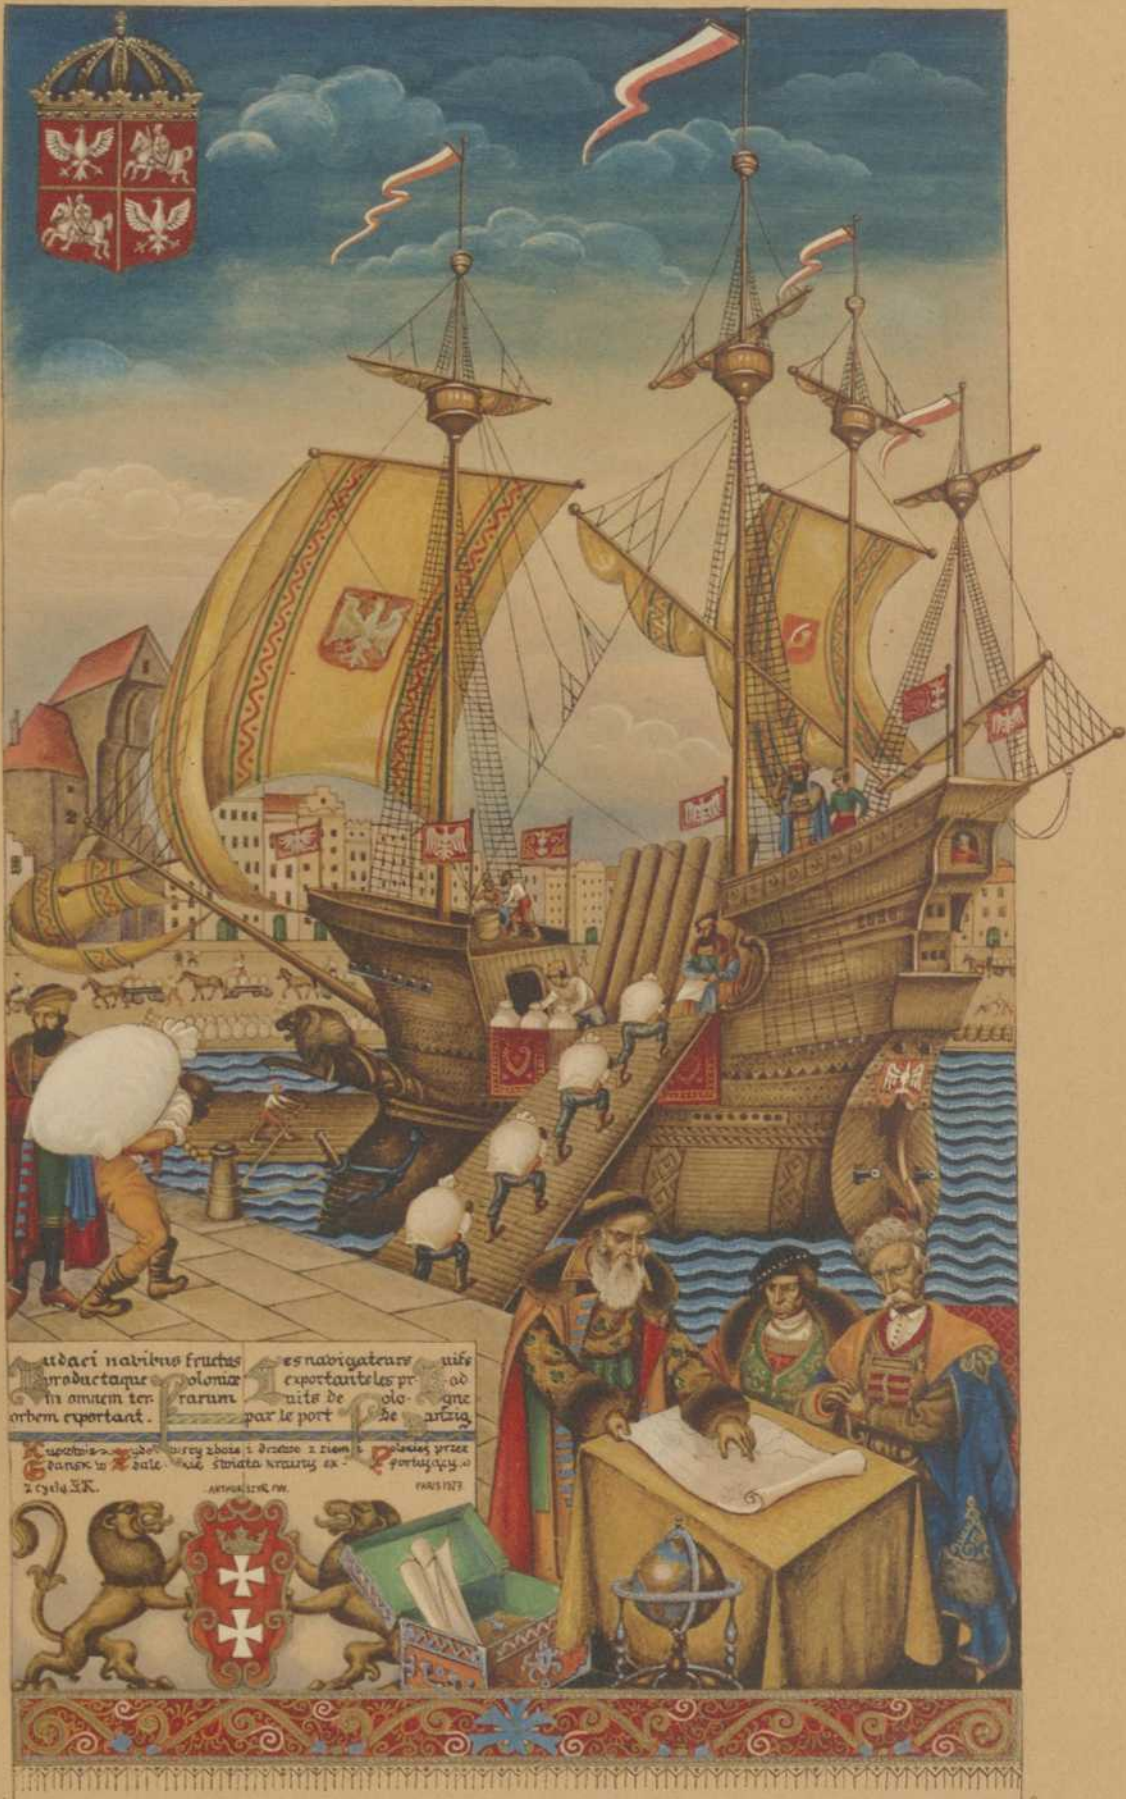 Audaci navibus fructus
Productaque Poloniæ
in omnem ter- rarum
orbem exportant.
Les navigateurs
exportante les pr od
uits de Polo- gne
par le port de Dantzig
wydo zboże i drzewo z ziemi Polskiej przez
Gdańsk w dale- kie świata krainy ex- portujący
z cyklu
ARTHUR SZYK PW.
PARIS 1927